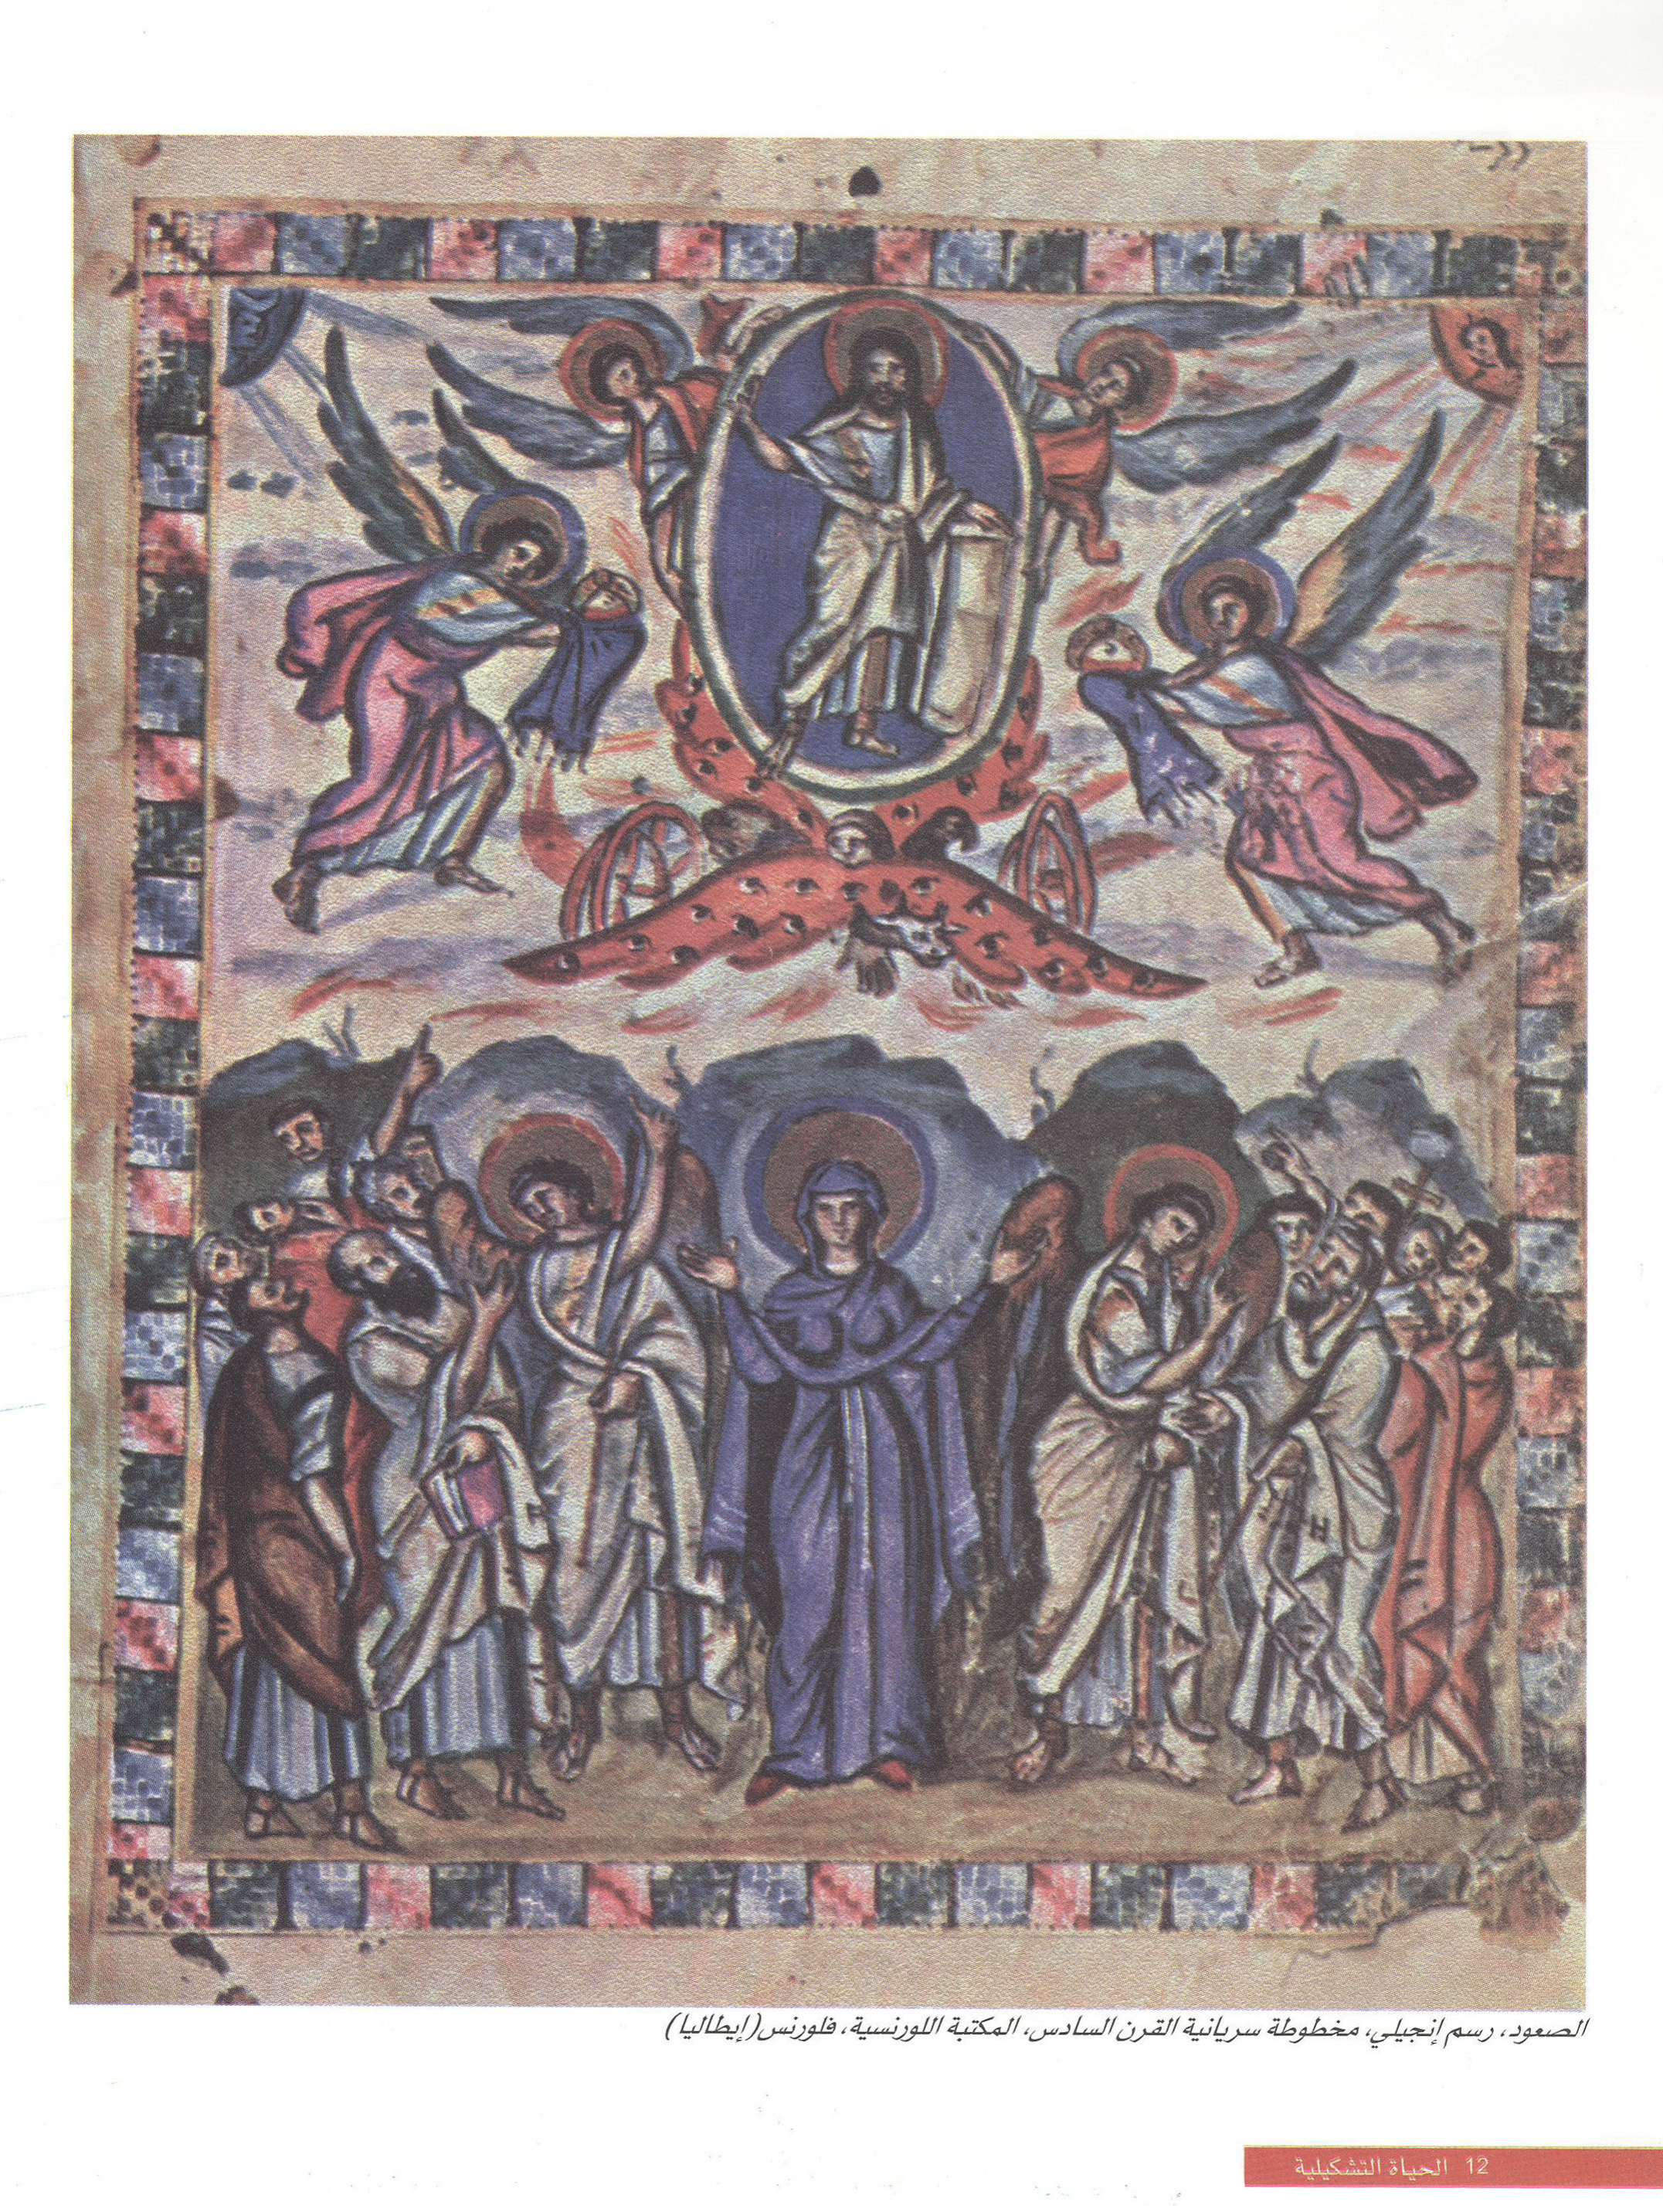 الصعود، رسم إنجيلي، مخطوطة سريانية القرن السادس، المكتبة اللورنسية، فلورنس (إيطاليا)
12 الحياة التشكيلية